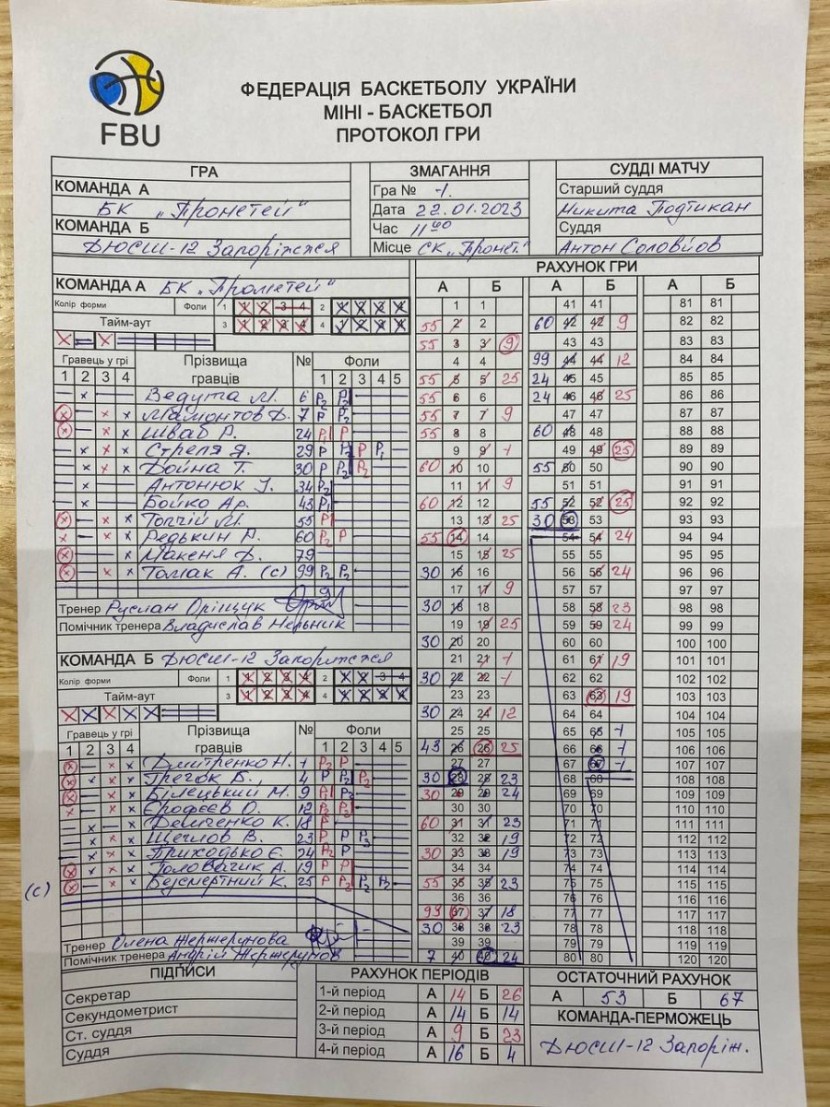 FBU
ФЕДЕРАЦІЯ БАСКЕТБОЛУ УКРАЇНИ
МІНІ - БАСКЕТБОЛ
ПРОТОКОЛ ГРИ
ГРА
КОМАНДА А
БК „Прометей"
КОМАНДА Б
ДЮСШ-12 Запоріжжя
ЗМАГАННЯ
Гра № -1.
Дата 22.01.2023
Час 11 00
Місце СК „Промет."
СУДДІ МАТЧУ
Старший суддя
Микита Подтикан
Суддя
Антон Соловйов
КОМАНДА А БК „Прометей"
Колір форми Фоли 1 1 2 3 4 2 1 2 3 4
Тайм-аут 3 1 2 3 4 4 1 2 3 4
Гравець у грі Прізвища гравців № Фоли
1 2 3 4 1 2 3 4 5
Ведута М. 6 P2 P2
Мамонтов Д. 7 P P2
Шваб Р. 24 P1 P
Стреля Я. 29 P P2 P P1
Война Т. 30 P P2 P2
Антонюк І. 34 P2
Бойко Ар. 43 P1
Топчій М. 55 P
Редькин Р. 60 P2 P
Макеня Д. 79
Томак А. (с) 99 P P2
Тренер Руслан Оріщук
Помічник тренера Владислав Мельник
КОМАНДА Б ДЮСШ-12 Запоріжжя
Колір форми Фоли 1 1 2 3 4 2 1 2 3 4
Тайм-аут 3 1 2 3 4 4 1 2 3 4
Гравець у грі Прізвища гравців № Фоли
1 2 3 4 1 2 3 4 5
Дмитренко Н. 1 P2 P
Грегок Б. 4 P P2 P2
Білецький М. 9 P P2
Єрофєєв О. 12 P2 P2
Демченко К. 18 P
Щеглов В. 23 P P P2
Приходько Є. 24 P2 P
Головачик А. 19 P P
(с) Безсмертний К. 25 P P2 P2 P2
Тренер Олена Жержерунова
Помічник тренера Андрій Жержерунов
РАХУНОК ГРИ
А Б А Б А Б
1 1 41 41 81 81
55 2 2 60 42 42 9 82 82
55 3 3 9 43 43 83 83
4 4 99 44 44 12 84 84
55 5 5 25 24 45 45 85 85
55 6 6 24 46 46 25 86 86
55 7 7 9 47 47 87 87
55 8 8 60 48 48 88 88
9 9 1 49 49 25 89 89
60 10 10 55 50 50 90 90
11 11 9 51 51 91 91
60 12 12 55 52 52 25 92 92
13 13 25 30 53 53 93 93
55 14 14 54 54 24 94 94
15 15 25 55 55 95 95
30 16 16 56 56 24 96 96
17 17 9 57 57 97 97
30 18 18 58 58 23 98 98
19 19 25 59 59 24 99 99
30 20 20 60 60 100 100
21 21 1 61 61 19 101 101
30 22 22 1 62 62 102 102
23 23 63 63 19 103 103
30 24 24 12 64 64 104 104
25 25 65 65 1 105 105
43 26 26 25 66 66 1 106 106
27 27 67 67 1 107 107
30 28 28 23 68 68 108 108
30 29 29 24 69 69 109 109
30 30 70 70 110 110
60 31 31 23 71 71 111 111
32 32 19 72 72 112 112
30 33 33 19 73 73 113 113
34 34 74 74 114 114
55 35 35 23 75 75 115 115
36 36 76 76 116 116
99 37 37 18 77 77 117 117
30 38 38 23 78 78 118 118
39 39 79 79 119 119
7 40 40 24 80 80 120 120
ПІДПИСИ
Секретар
Секундометрист
Ст. суддя
Суддя
РАХУНОК ПЕРІОДІВ
1-й період А 14 Б 26
2-й період А 14 Б 14
3-й період А 9 Б 23
4-й період А 16 Б 4
ОСТАТОЧНИЙ РАХУНОК
А 53 Б 67
КОМАНДА-ПЕРМОЖЕЦЬ
ДЮСШ-12 Запоріж.